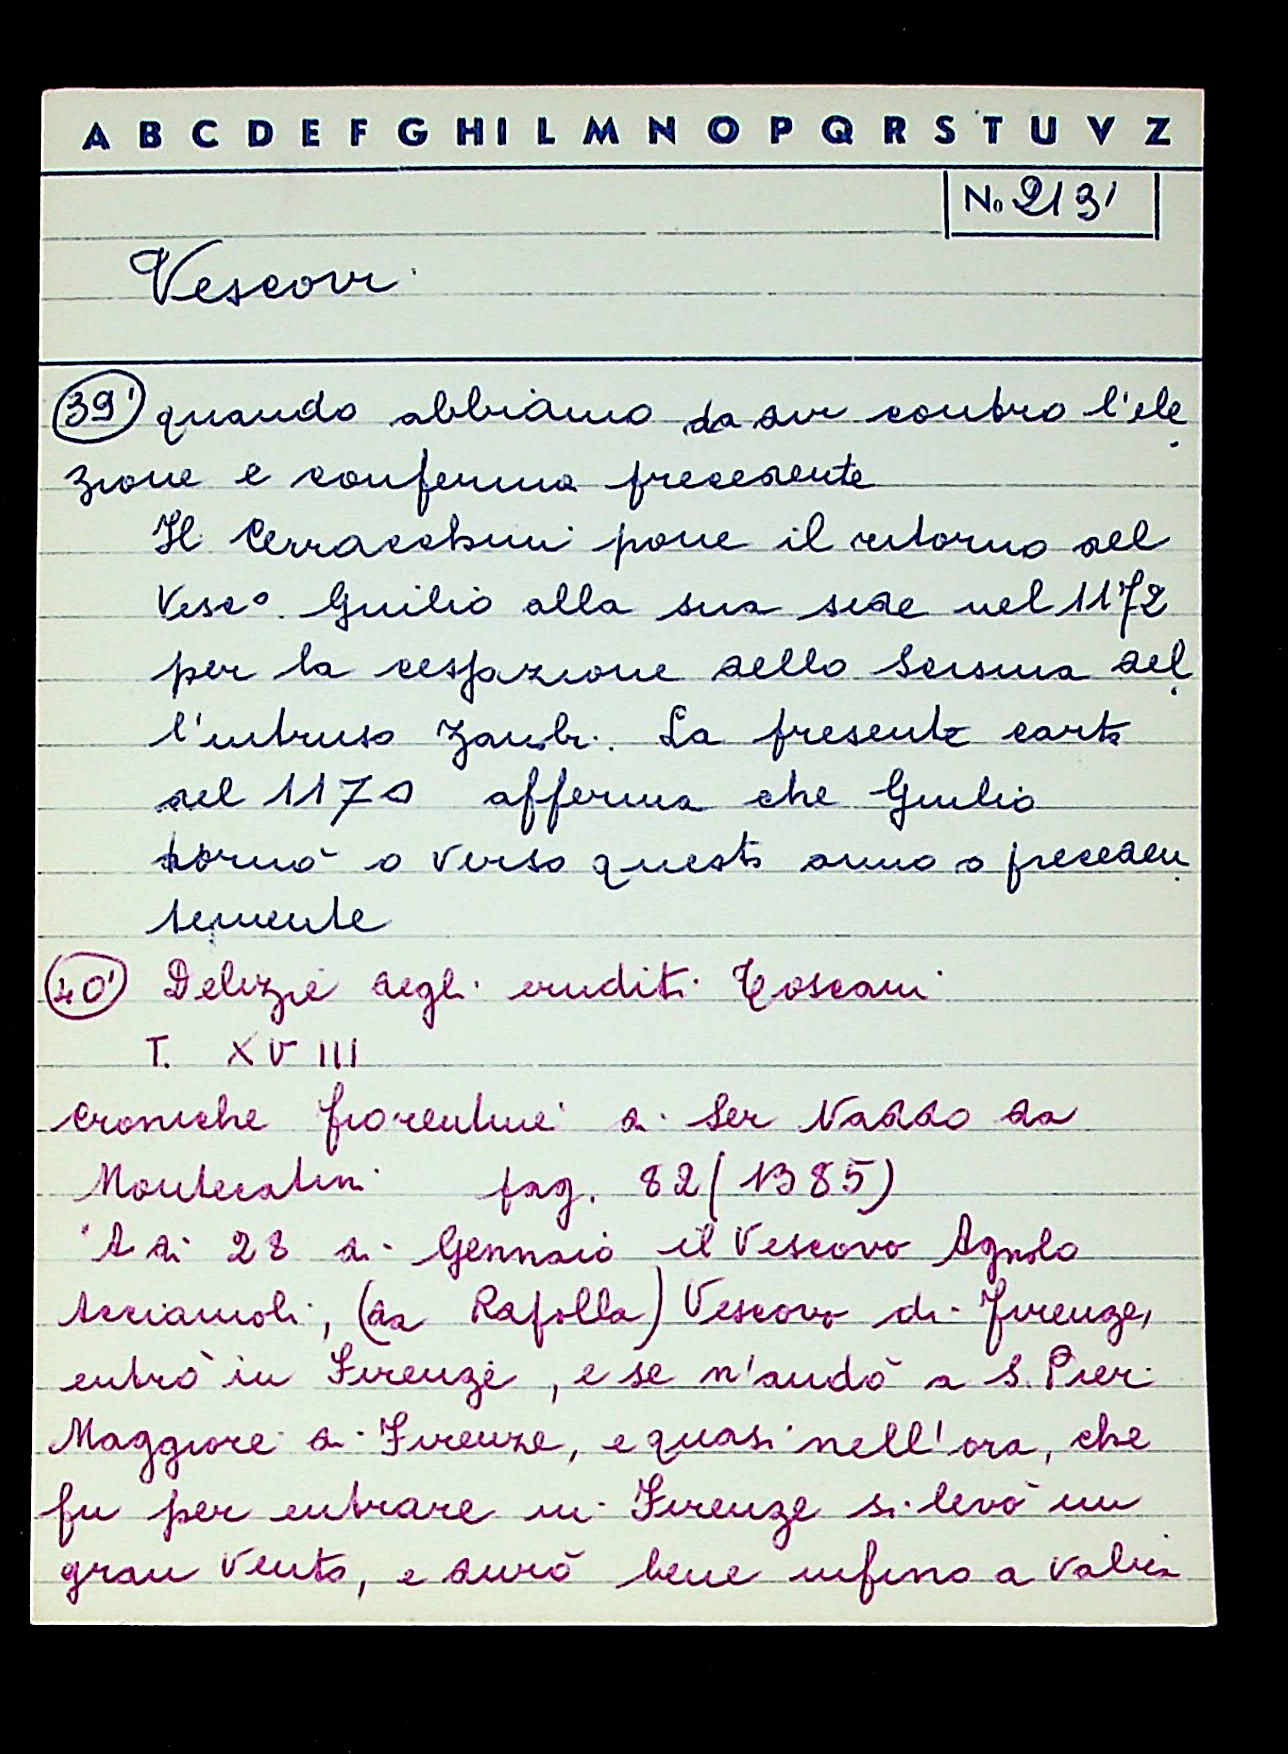 A B C D E F G H I L M N O P Q R S T U V Z
No 213'
Vescovi
39' quando abbiamo da dir contro l'ele
zione e conferma precedente
Il Cerracchini pone il ritorno del
Vesc°. Giulio alla sua sede nel 1172
per la cessazione dello Scisma del
l'intruso Zanobi. La presente carta
del 1170 afferma che Giulio
tornò o verso questo anno o preceden
temente
40' Delizie degli eruditi Toscani
T. XVIII
Croniche fiorentine di Ser Naddo da
Montecatini pag. 82 (1385)
A dì 28 di Gennaio il Vescovo Agnolo
Acciaiuoli, (da Rapolla) Vescovo di Firenze,
entrò in Firenze, e se n'andò a S. Pier
Maggiore di Firenze, e quasi nell'ora, che
fu per entrare in Firenze si levò un
gran vento, e durò bene infino a